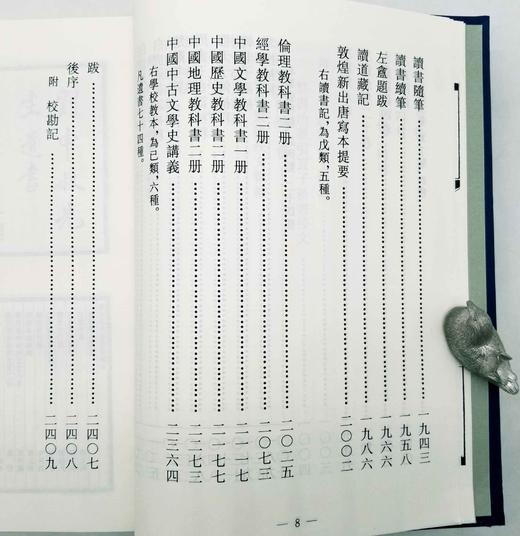 讀書隨筆……一九四三
讀書續筆……一九五八
左盦題跋……一九六六
讀道藏記……一九八六
敦煌新出唐寫本提要……二〇〇二
右讀書記，為戊類，五種。
倫理教科書二册……二〇二五
經學教科書二册……二〇七三
中國文學教科書一册……二一一七
中國歷史教科書二册……二一七七
中國地理教科書二册……二二七三
中國中古文學史講義……二三六四
右學校教本，為己類，六種。
凡遺書七十四種。
跋……二四〇七
後序……二四〇八
附 校勘記……二四〇九
— 8 —